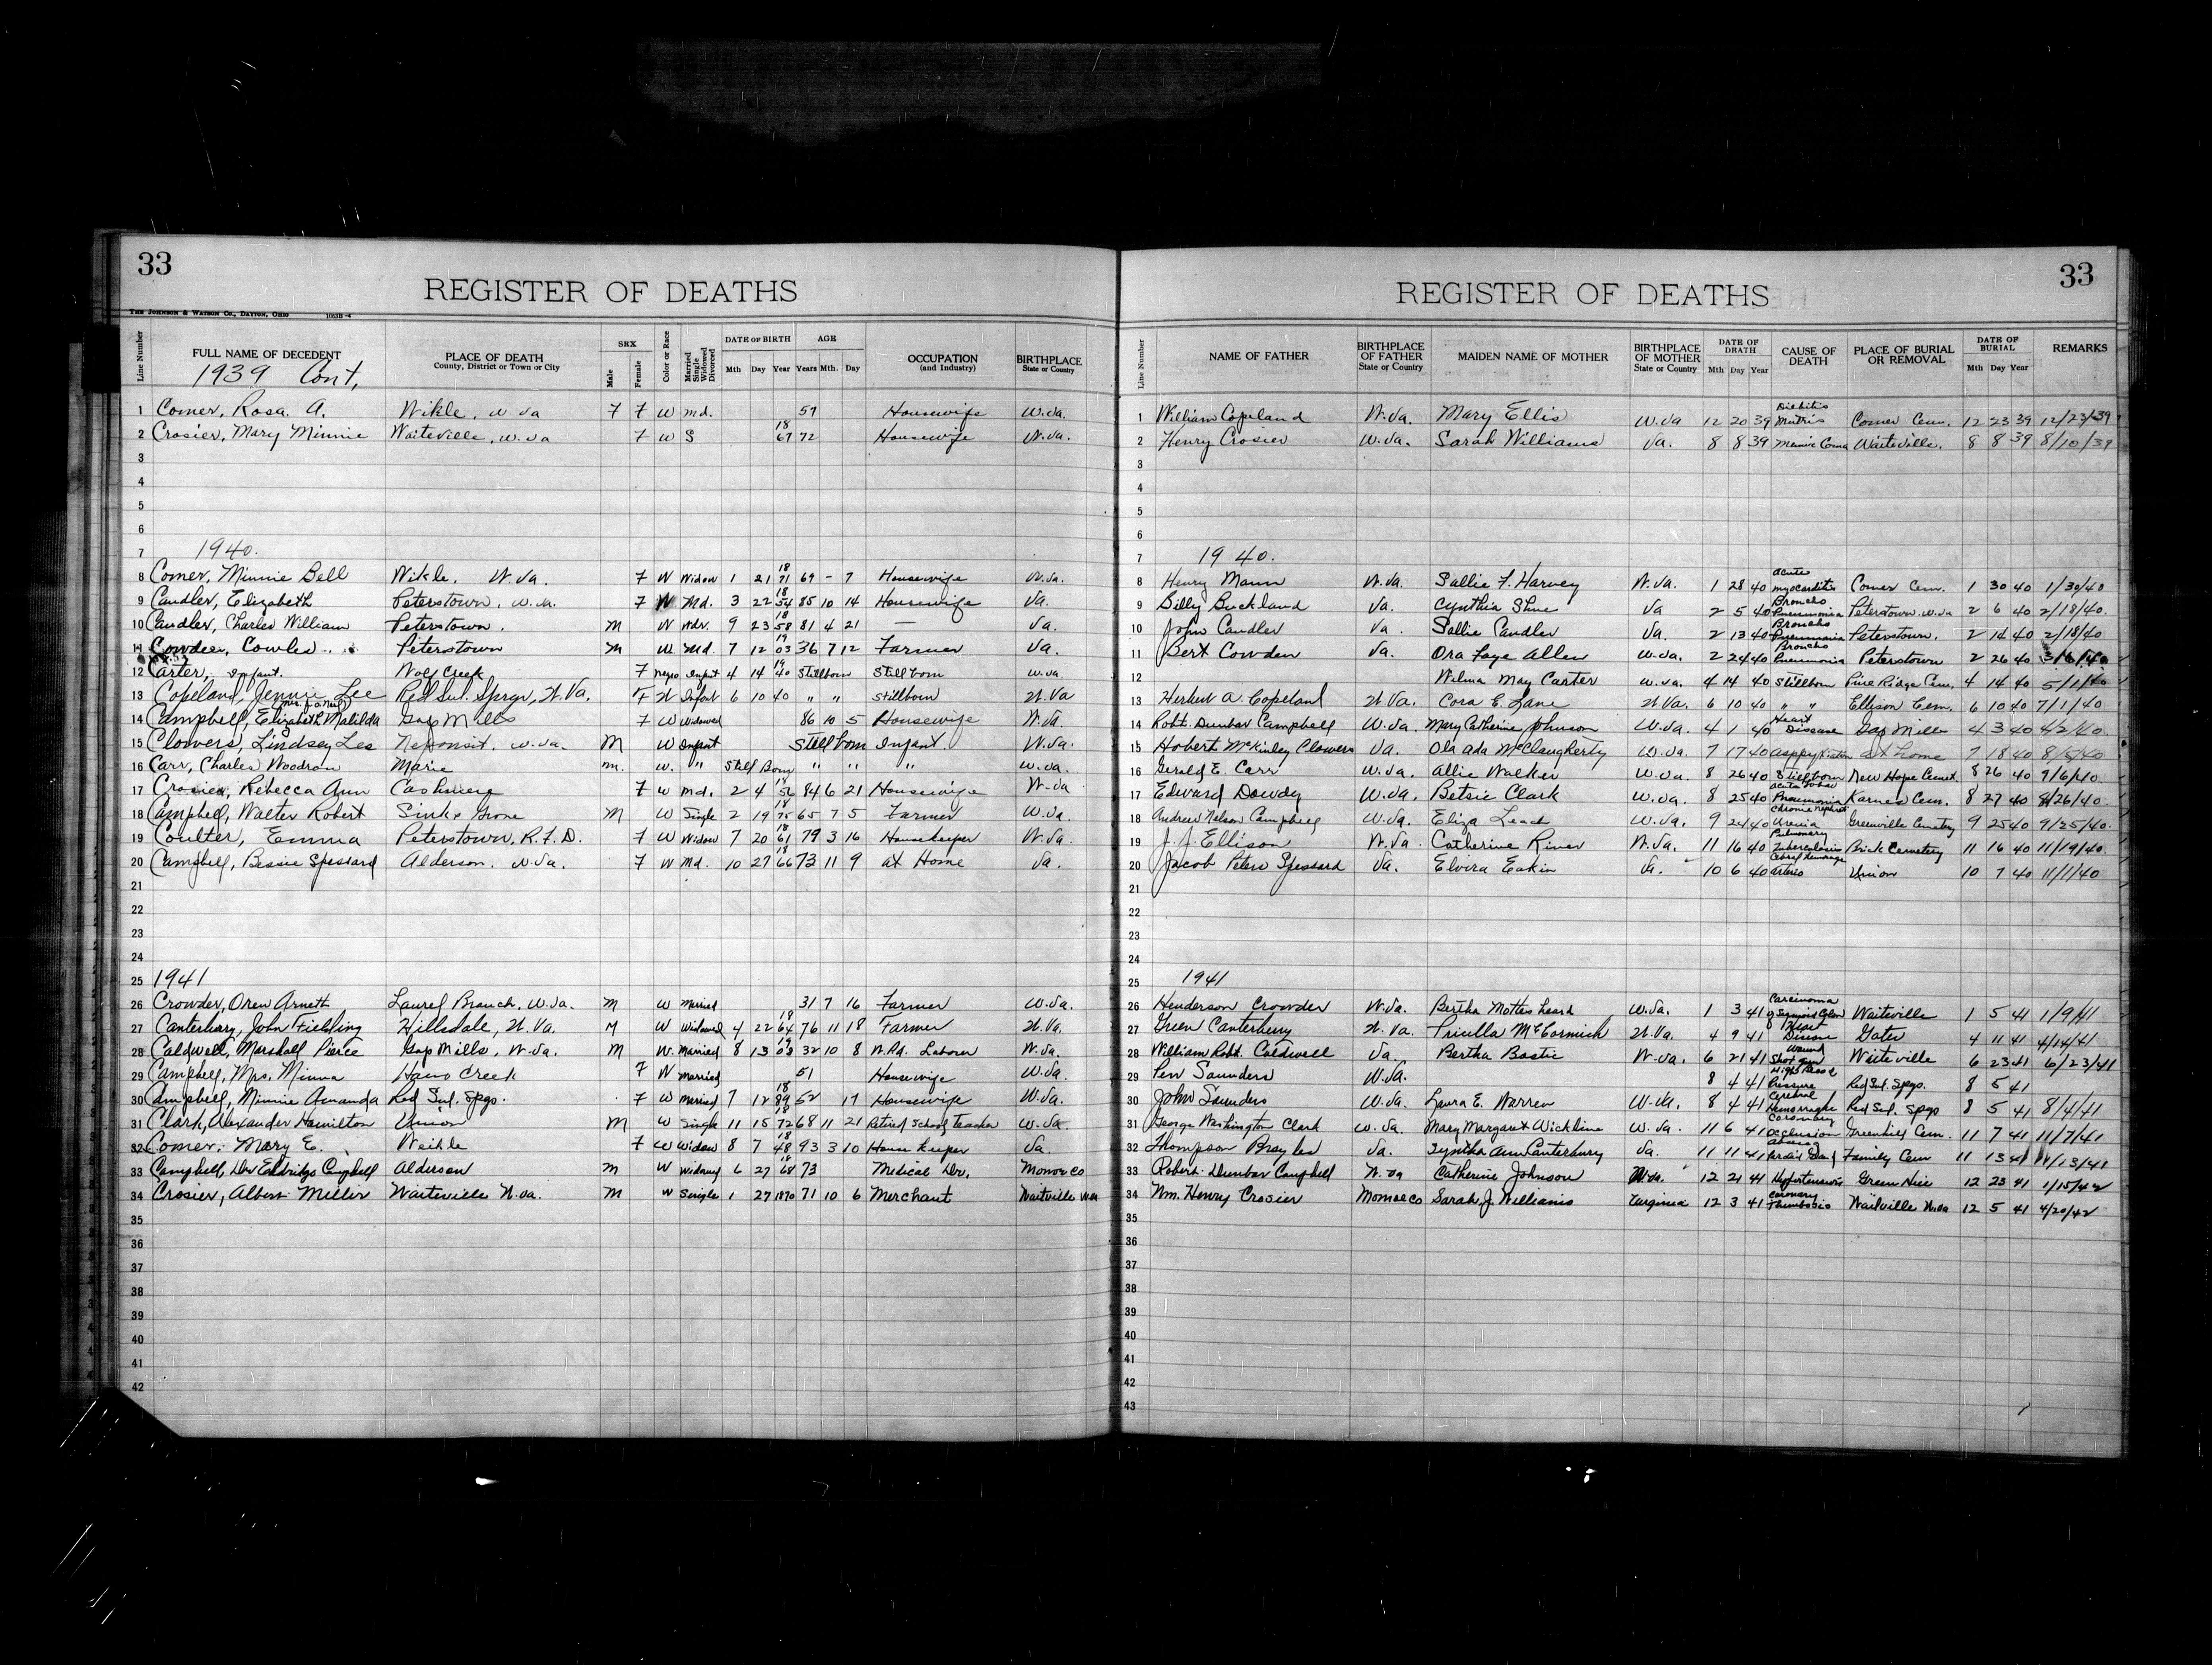 33
REGISTER OF DEATHS
THE JOHNSON & WATSON CO., DAYTON, OHIO 1063B-4
Line Number FULL NAME OF DECEDENT PLACE OF DEATH County, District or Town or City SEX Male Female Color or Race Married Single Widowed Divorced DATE OF BIRTH Mth Day Year AGE Years Mth. Day OCCUPATION (and Industry) BIRTHPLACE State or Country
1939 Cont,
1 Comer, Rosa. A. Wikle, W Va F F W Md. 57 Housewife W.Va.
2 Crosier, Mary Minnie Waiteville, W.Va F W S 18 67 72 Housewife W.Va.
3
4
5
6
7 1940.
8 Comer, Minnie Bell Wikle. W.Va. F W Widow 1 21 18 71 69 - 7 Housewife W.Va.
9 Candler, Elizabeth Peterstown, W.Va. F W Md. 3 22 18 54 85 10 14 Housewife Va.
10 Candler, Charles William Peterstown. M W Wdr. 9 23 18 58 81 4 21 — Va.
11 Cowden, Cowles Peterstown M W Md. 7 12 19 03 36 7 12 Farmer Va.
12 Carter, Infant. Wolf Creek F Negro Infant 4 14 19 40 Stillborn Stillborn W.Va
13 Copeland, Jennie Lee Red Sul. Spgs, W.Va. F W Infant 6 10 40 " " Stillborn W.Va
14 Campbell, Elizabeth Matilda Gap Mills F W Widowed 86 10 5 Housewife W.Va.
15 Clowers, Lindsey Lee W.Va. M W Infant Stillborn Infant W.Va.
16 Carr, Charles Woodrow Marie M. W. " Still Born " " " W.Va.
17 Crosier, Rebecca Ann Cashmere F W Md. 2 4 18 56 84 6 21 Housewife W.Va
18 Campbell, Walter Robert Sinks Grove M W Single 2 19 18 75 65 7 5 Farmer W.Va.
19 Coulter, Emma Peterstown, R.F.D. F W Widow 7 20 18 61 79 3 16 Housekeeper W.Va.
20 Campbell, Bessie Spessard Alderson. W.Va. F W Md. 10 27 18 66 73 11 9 At Home Va.
21
22
23
24
25 1941
26 Crowder, Oren Arneth Laurel Branch, W.Va. M W Married 31 7 16 Farmer W.Va.
27 Canterbury, John Fielding Hillsdale, W.Va. M W Widowed 4 22 18 64 76 11 18 Farmer W.Va.
28 Caldwell, Marshall Pierce Gap Mills, W.Va. M W. Married 8 13 19 08 32 10 8 Laborer W.Va.
29 Campbell, Mrs. Minna Hans Creek F W Married 51 Housewife W.Va.
30 Campbell, Minnie Amanda Red Sul. Spgs. F W Married 7 12 18 89 52 17 Housewife W.Va.
31 Clark, Alexander Hamilton Union M W Single 11 15 18 72 68 11 21 Retired School Teacher W.Va.
32 Comer, Mary E. Waikle F W Widow 8 7 18 48 93 3 10 House Keeper Va.
33 Campbell, Dr Eldridge Campbell Alderson M W Widowed 6 27 18 68 73 Medical Dr. Monroe Co
34 Crosier, Albert Miller Waiteville W.Va. M W Single 1 27 1870 71 10 6 Merchant Waiteville W.Va
35
36
37
38
39
40
41
42
33
REGISTER OF DEATHS
Line Number NAME OF FATHER BIRTHPLACE OF FATHER State or Country MAIDEN NAME OF MOTHER BIRTHPLACE OF MOTHER State or Country DATE OF DEATH Mth Day Year CAUSE OF DEATH PLACE OF BURIAL OR REMOVAL DATE OF BURIAL Mth Day Year REMARKS
1 William Copeland W.Va. Mary Ellis W.Va 12 20 39 Comer Cem. 12 23 39 12/23/39
2 Henry Crosier W.Va. Sarah Williams Va. 8 8 39 Coma Waiteville. 8 8 39 8/10/39
3
4
5
6
7 1940.
8 Henry Mann W.Va. Sallie F. Harvey W.Va. 1 28 40 Acute myocarditis Comer Cem. 1 30 40 1/30/40
9 Billy Buckland Va. Cynthia Shue Va 2 5 40 Broncho Pneumonia Peterstown W.Va 2 6 40 2/18/40.
10 John Candler Va. Sallie Candler Va. 2 13 40 Broncho Pneumonia Peterstown. 2 14 40 2/18/40
11 Bert Cowden Va. Ora Faye Allen W.Va. 2 24 40 Broncho Pneumonia Peterstown 2 26 40 3/6/40
12 Wilma May Carter W.Va. 4 14 40 Stillborn Pine Ridge Cem. 4 14 40 5/1/40
13 Herbert A. Copeland W.Va. Cora E. Lane W.Va. 6 10 40 " " Ellison Cem. 6 10 40 7/1/40
14 Robt. Dunbar Campbell W.Va. Mary Catherine Johnson W.Va. 4 1 40 Heart Disease Gap Mills 4 3 40 4/2/40.
15 Hobert McKinley Clowers Va. Ola Ada McClaugherty W.Va. 7 17 40 At home 7 18 40 8/5/40
16 Gerald E. Carr W.Va. Allie Walker W.Va. 8 26 40 Stillborn New Hope Cemet. 8 26 40 9/6/40.
17 Edward Dowdy W.Va. Betsie Clark W.Va. 8 25 40 Acute Lobar Pneumonia Karnes Cem. 8 27 40 8/26/40.
18 Andrew Nelson Campbell W.Va. Eliza Leach W.Va. 9 24 40 Chronic Nephrit Uremia Greenville Cemetery 9 25 40 9/25/40.
19 J. J. Ellison W.Va. Catherine River W.Va. 11 16 40 Pulmonary Tuberculosis Brick Cemetery 11 16 40 11/19/40.
20 Jacob Peters Spessard Va. Elvira Eakin Va. 10 6 40 Union 10 7 40 11/1/40
21
22
23
24
25 1941
26 Henderson Crowder W.Va. Bertha Mottesheard W.Va. 1 3 41 Carcinoma Waiteville 1 5 41 1/9/41
27 Green Canterbery W.Va. Pricilla McCormick W.Va. 4 9 41 Heart Disease Gates 4 11 41 4/14/41
28 William Robt. Caldwell Va. Bertha Bostic W.Va. 6 21 41 Wound Waiteville 6 23 41 6/23/41
29 Lew Saunders W.Va. 8 4 41 High Blood Pressure Red Sul. Spgs. 8 5 41
30 John Saunders W.Va. Laura E. Warren W.Va. 8 4 41 Cerebral Hemorrhage Red Sul. Spgs 8 5 41 8/4/41
31 George Washington Clark W.Va. Mary Margaret Wickline W.Va. 11 6 41 Coronary Occlusion Greenhill Cem. 11 7 41 11/7/41
32 Thompson Brayles Va. Syntha Ann Canterbury Va. 11 11 41 Family Cem 11 13 41 11/13/41
33 Robert Dunbar Campbell W.Va Catherine Johnson W.Va. 12 21 41 Hypertension Green Hill 12 23 41 1/15/42
34 Wm. Henry Crosier Monroe Co Sarah J. Williams Virginia 12 3 41 Coronary Thrombosis Waiteville W.Va 12 5 41 4/20/42
35
36
37
38
39
40
41
42
43